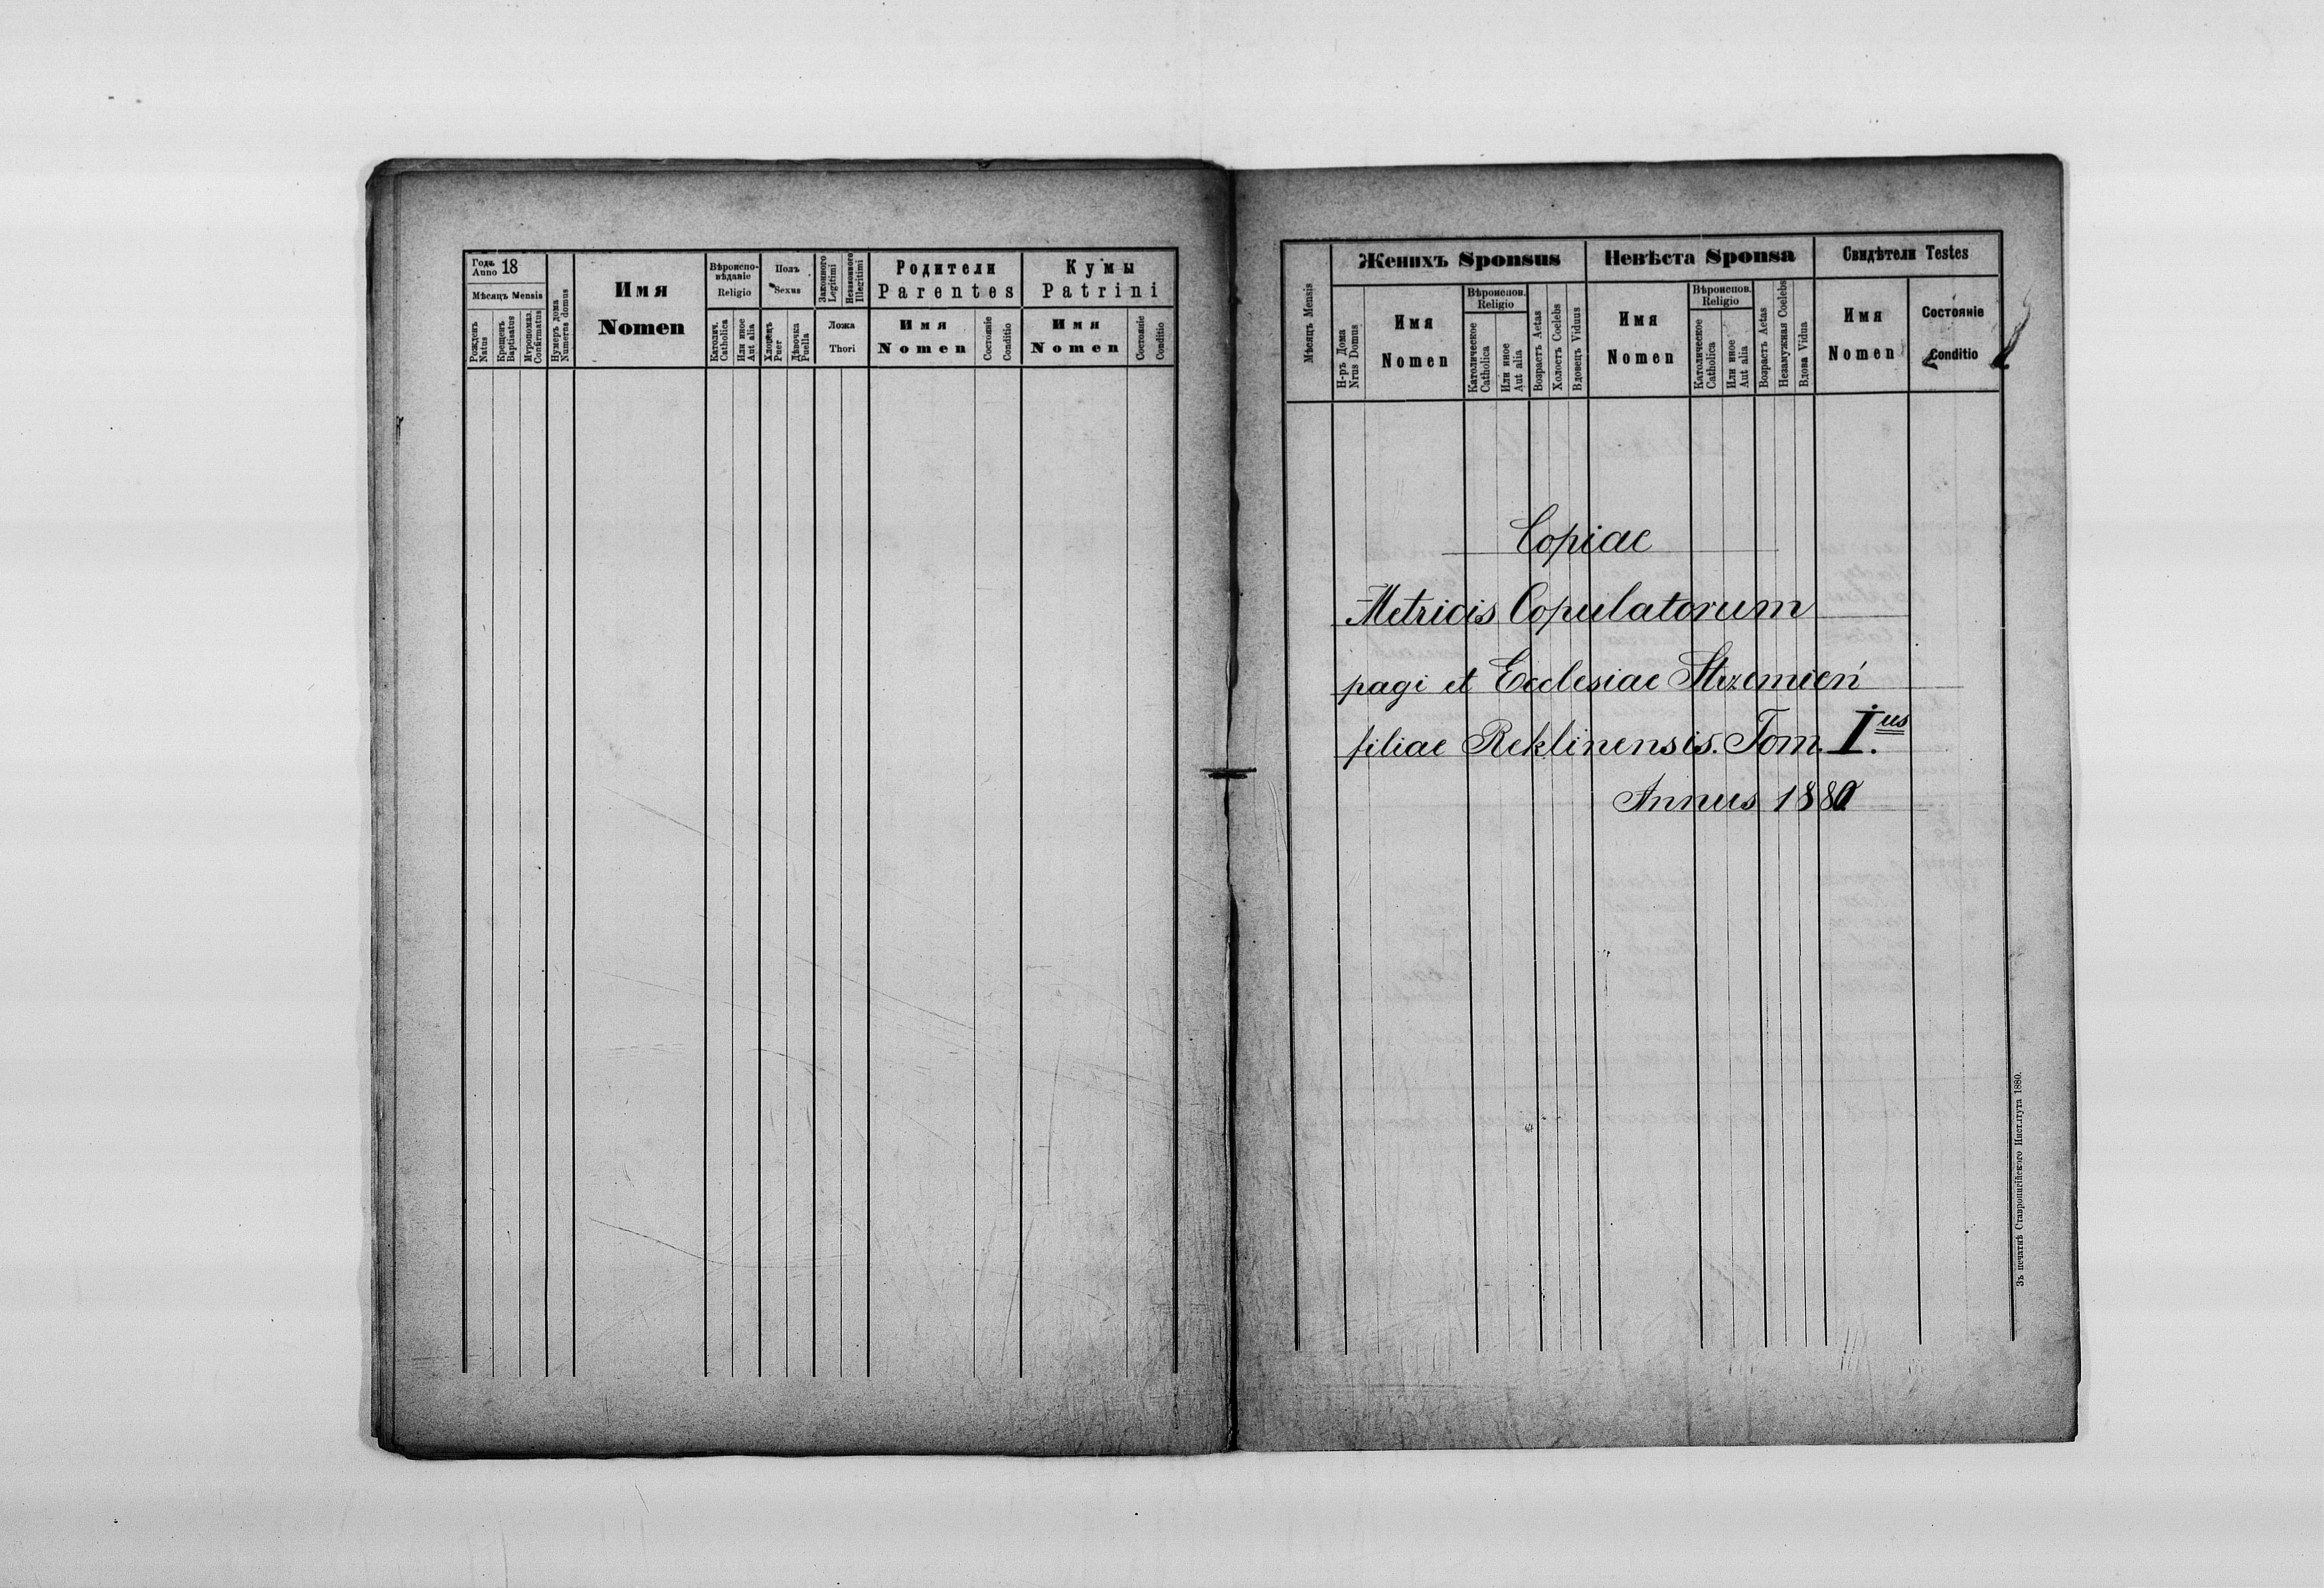 Годъ Anno 18
Мѣсяць Mensis
Рожденъ Natus
Крещенъ Baptisatus
Мѵропомаз. Confirmatus
Нумеръ дома Numerus domus
Имя
Nomen
Вѣроиспо-
вѣданіе
Religio
Католич. Catholica
Или иное Aut alia
Полъ
Sexus
Хлопецъ Puer
Дѣвочка Puella
Законного Legitimi
Незаконного Illegitimi
Ложа
Thori
Родители
Parentes
Имя
Nomen
Состояніе Conditio
Кумы
Patrini
Имя
Nomen
Состояніе Conditio
Мѣсяцъ Mensis
Женихъ Sponsus
Н-ръ Дома Nrus Domus
Имя
Nomen
Вѣроиспов.
Religio
Католическое Catholica
Или иное Aut alia
Возрастъ Aetas
Холостъ Coelebs
Вдовецъ Viduus
Невѣста Sponsa
Имя
Nomen
Вѣроиспов.
Religio
Католическое Catholica
Или иное Aut alia
Возрастъ Aetas
Незамужная Coelebs
Вдова Vidua
Свидѣтели Testes
Имя
Nomen
Состояніе
Conditio
Copiae
Metricis Copulatorum
pagi et Ecclesiae Strzemień
filiae Reklinensis. Tom. I.us
Annus 1880
Зъ печатнѣ Ставропигійского Института 1880.